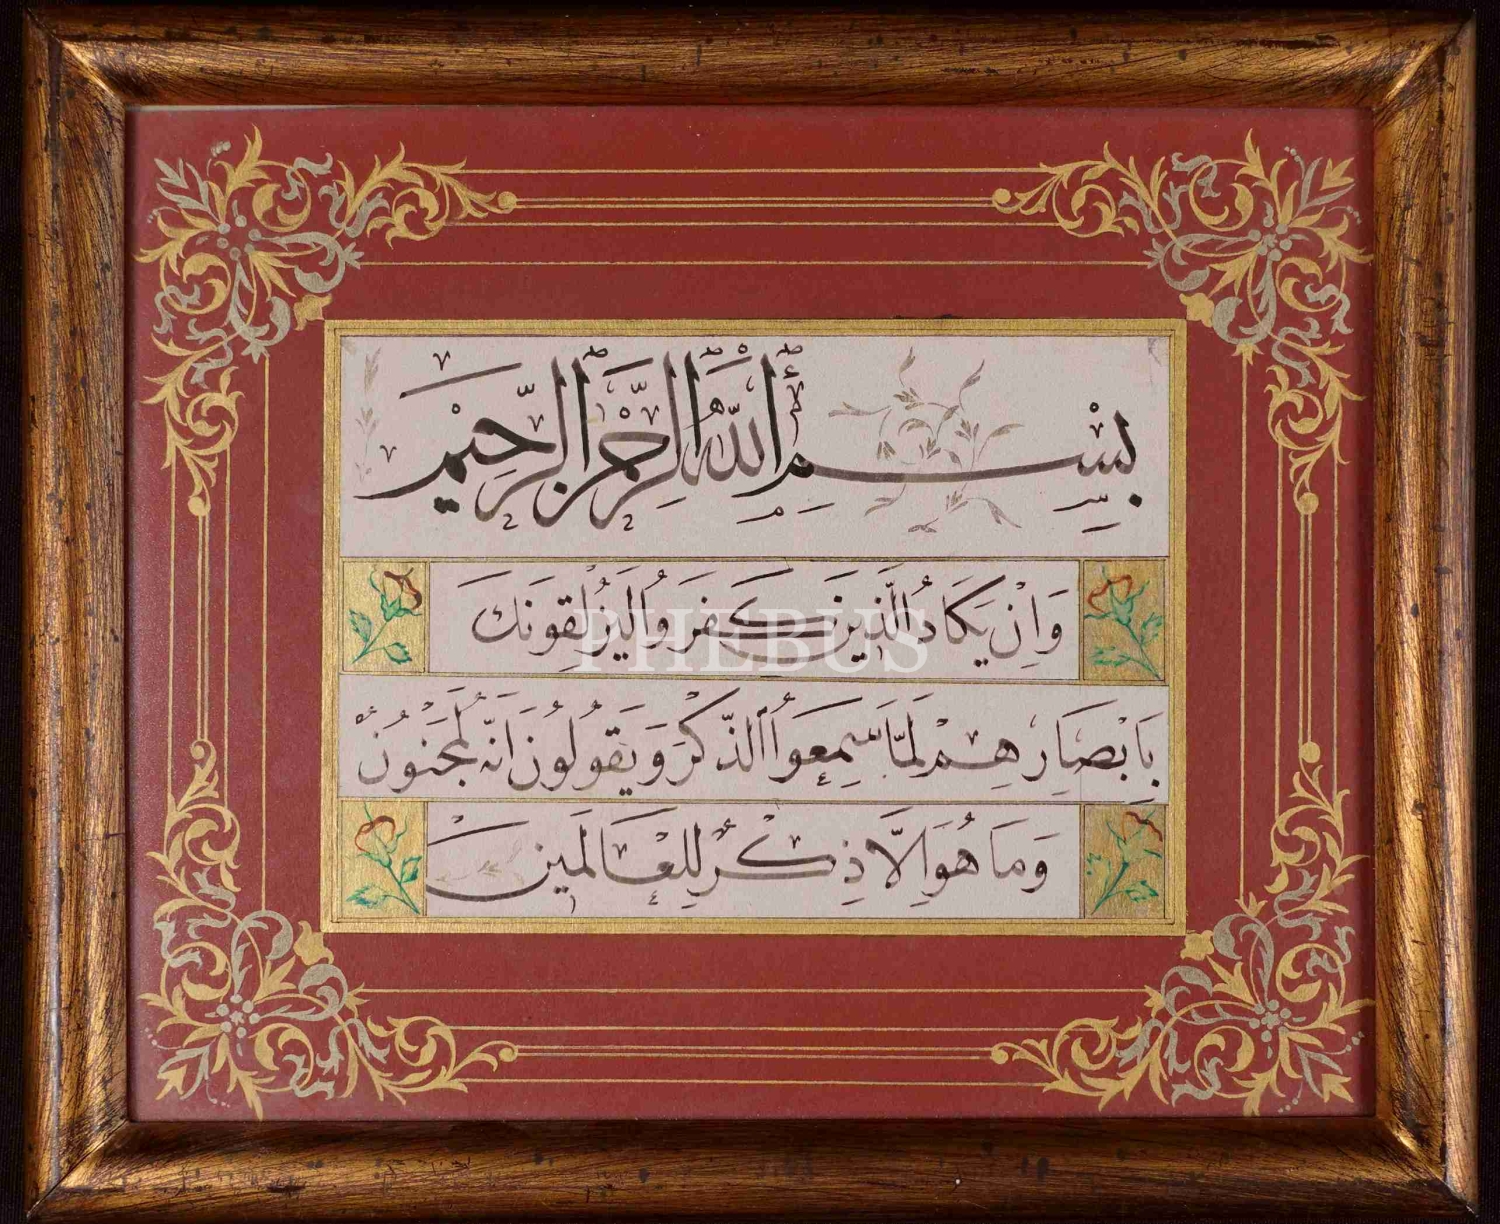 بِسْمِ اللّٰهِ الرَّحْمٰنِ الرَّحِيْمِ
وَاِنْ يَكَادُ الَّذِينَ كَفَرُوا لَيُزْلِقُونَكَ
بِاَبْصَارِهِمْ لَمَّا سَمِعُوا الذِّكْرَ وَيَقُولُونَ اِنَّهُ لَمَجْنُونٌ
وَمَا هُوَ اِلَّا ذِكْرٌ لِلْعَالَمِينَ
PHEBUS